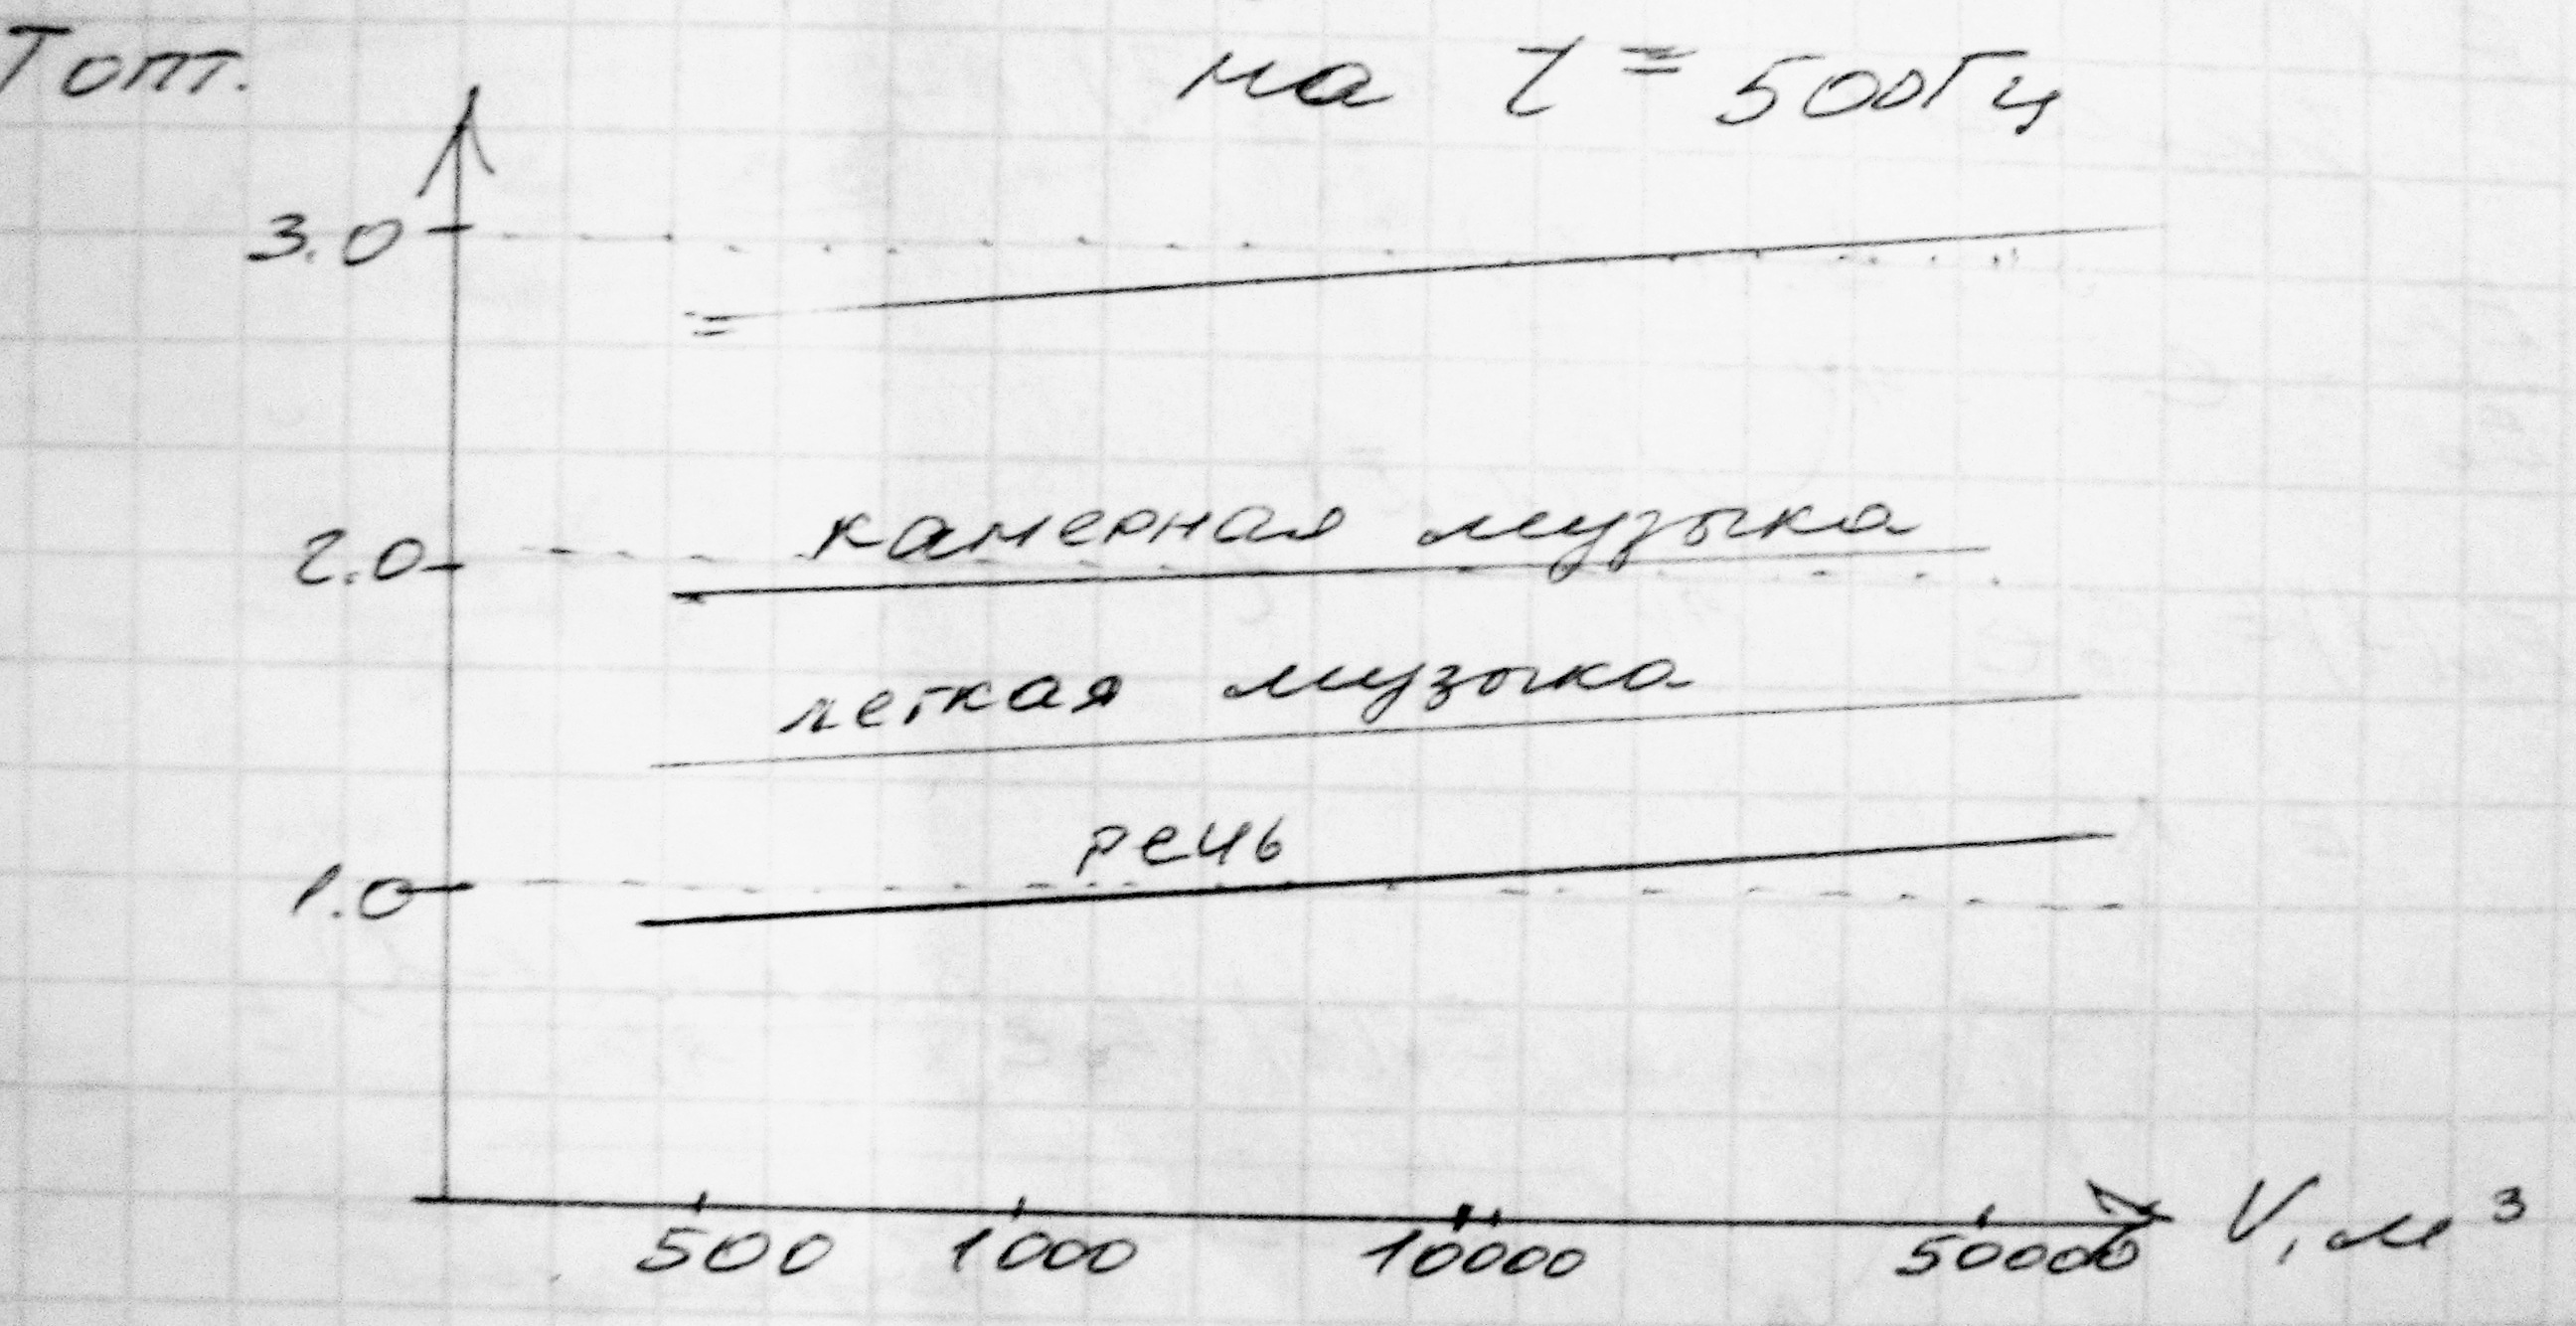 Tопт.
на τ = 500Гц
3.0
камерная музыка
2.0
легкая музыка
речь
1.0
500 1000 10000 50000 V, м³